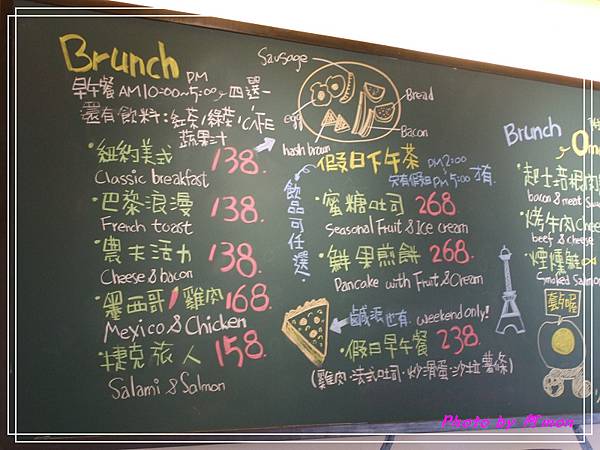 Brunch
早午餐 AM10:00~PM5:00 四選一
還有飲料:紅茶/綠茶/CAFE
蔬果汁
·紐約美式 138.
Classic breakfast
·巴黎浪漫 138.
French toast
·農夫活力 138.
Cheese & bacon
·墨西哥/雞肉 168.
Mexico & Chicken
·捷克旅人 158.
Salami & Salmon
Sausage
egg
Bread
Bacon
hash brown
假日下午茶 PM2:00
只有假日 PM5:00 才有.
飲品可任選.
·蜜糖吐司 268.
Seasonal Fruit & Ice cream
·鮮果煎餅 268.
Pancake with Fruit & Cream
鹹派也有. weekend only!
·假日早午餐 238.
(雞肉·法式吐司·炒滑蛋·沙拉 薯條)
Brunch
·起士培根肉
bacon & meat
·烤牛肉 Chee
beef & cheese
·煙燻鮭
Smoked Salmon
Photo by